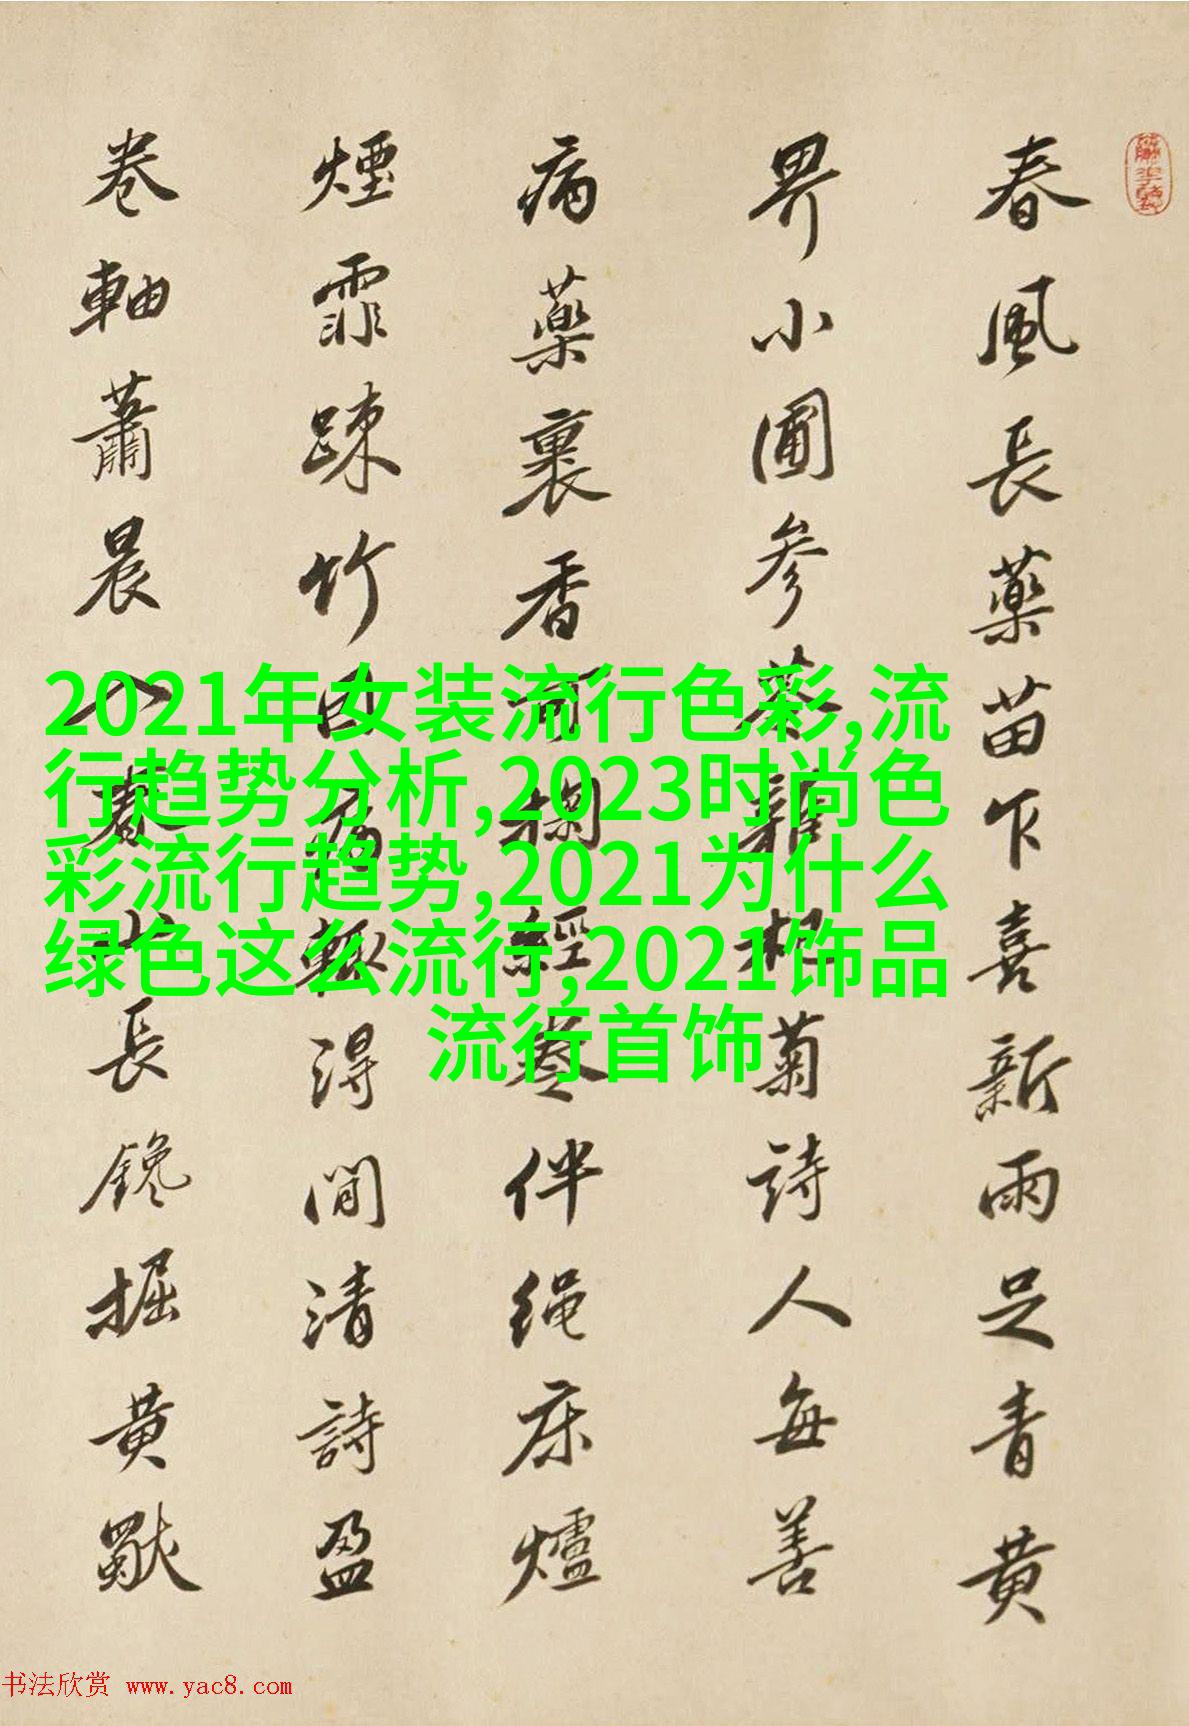 春風長藥苗乍喜新雨足青黄
界小圃参苓雜杞菊詩人每善
病藥裹香可掬經卷伴繩床爐
煙霏踈竹因病輒得閒清詩盈
卷軸蕭晨入春山長鑱掘黄獨
2021年女装流行色彩,流
行趋势分析,2023时尚色
彩流行趋势,2021为什么
绿色这么流行,2021饰品
流行首饰
书法欣赏 www.yac8.com